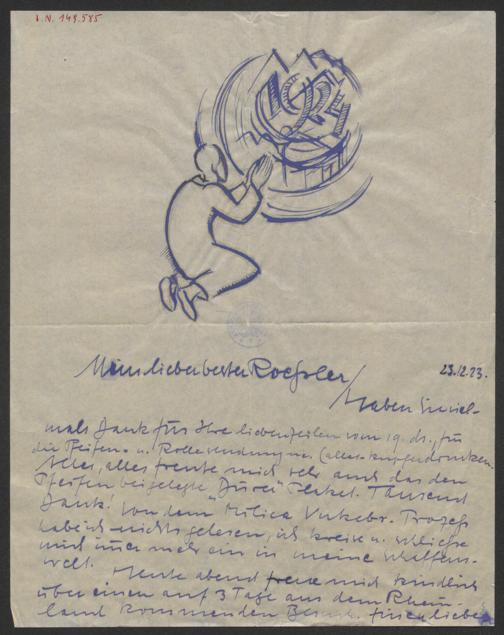 I.N. 149.585
192
Mein lieber bester Roessler
23.12.23.
haben Sie viel-
mals Dank für Ihre lieben Zeilen vom 19. ds., für
die Pfeifen- u. Rollesendung
Alles, alles freute mich sehr auch das den
Pfeifen beigelegte Plakat. Tausend
Dank! Von dem Milica Vukobr. Prozeß
habe ich nichts gelesen, ich kreise u. schließe
mich immer mehr ein in meine Schaffens-
welt. Heute abend freue mich kindlich
über einen auf 3 Tage aus dem Rhein-
land kommenden Besuch. lieben